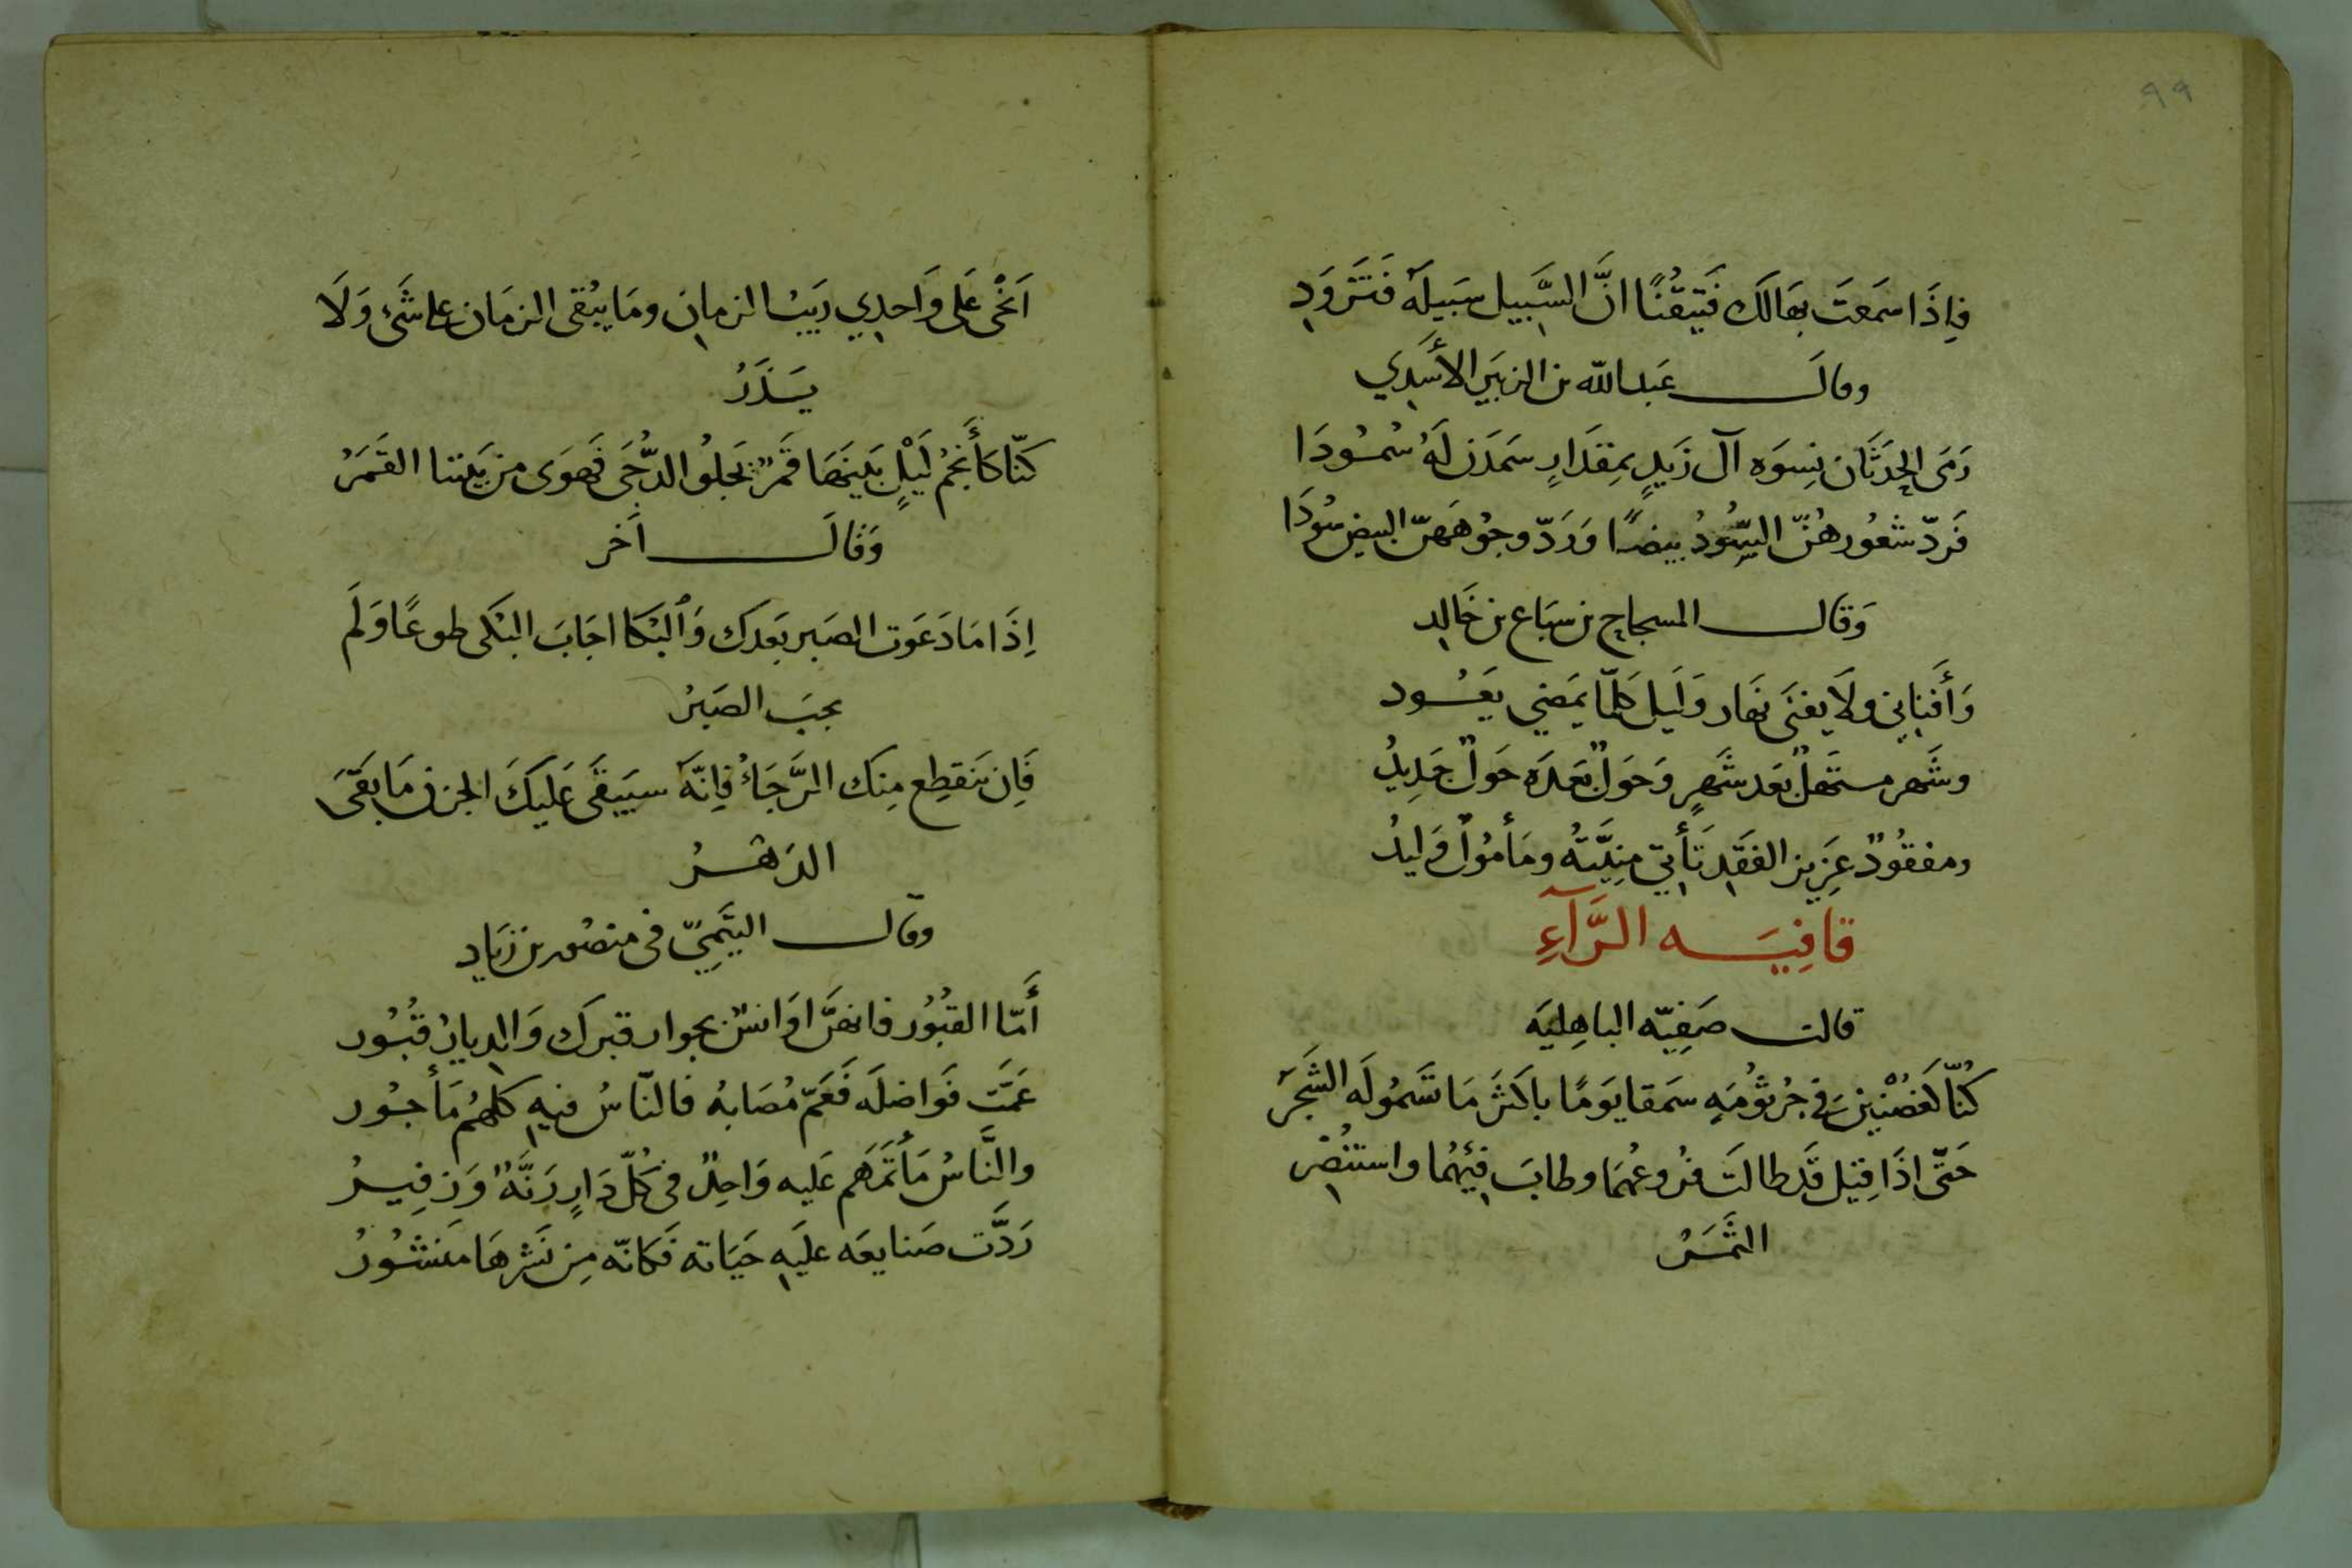 ٩٩
فاِذَا سَمَعتَ بهَالَك فَتَيَقُنًا انَّ السَّبيل سَبيلَهٗ فَتَزَوَدِ
وقالَ عَبد الله بن الزبَير الأَسَدِي
رَمَى الحِدثَان نِسوَه آل زَيدٍ بمِقدَارٍ سَمَدَن لَهُ سُمُودَا
فَردّ شعُورهُنّ السُّودُ بيضًا وَرَدّ وجوُههَنّ البيض سُودَا
وَقال المسجاحِ بن سبَاع بن خَالِد
وَأَفنانِي ولَا يفنَى نهَار وَلَيل كلّمّا يمَضي يَعُود
وشَهر مستَهلٌ بَعد شَهرٍ وَحَولٌ بَعدَه حَولٌ جَدِيدُ
ومفقُودٌ عَزِيز الفَقدِ تَأتي مِنيَّتهُ ومَأمُولٌ وَليدُ
قافِيَه الرَّآءِ
قالت صَفِيّه الباهِليَه
كُنّا كَغصُنْين في جُرثوُمَهٍ سَمقا يَومًا باكَثر مَا تَسمُو لَه الشَجَر
حَتّى اذَا قيِل قَد طالَت فرُوعُهُمَا وطابَ فيئهُما واستنُضِر
الثَمَرُ
اَخْنَى عَلى وَاحدِي رَيبُ الزمانِ ومَا يبْقى الزمَان على شَئ وَلَا
يَذَرُ
كنّا كأَنجُم لَيْلٍ بَينهَا قَمَرٌ يَجلُو الدُّجَى فَهوَى من بَيننا القَمَرُ
وَقالَ اَخر
اِذَا مَا دَعَوت الصَبر بَعدَك وَالبُكا اجَابَ البُكى طوعًا وَلَم
يجبَ الصَبرُ
فَاِن يَنقطِع مِنك الرَّجَاءُ فاِنّهَ سيَبقَى عَليكَ الحزن مَا بَقىَ
الدَهرُ
وقال التَيمِيّ في منصُور بن زيَادِ
أَمّا القبُوُر فانهَنَّ اوَانسٌ بجوار قبرَك وَالدِيارُ قبُورُ
عَمَّتَ فَواضلَه فَعَمّ مُصَابهُ فالنّاسُ فيهِ كلهُم مَأجوُر
والنَّاسُ مَأتمَهَم عَليه وَاحِدٌ في كُلّ دَارٍ رَنَّهٌ وَزفِيرُ
رَدَّت صَنايعَه عليَهِ حَيَاته فَكانّه مِن نَشرهَا مَنشُورُ